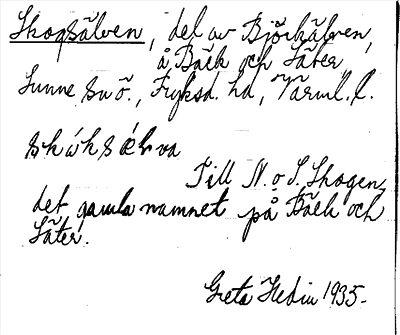 Skogsälven, del av Björkälven,
å Bäck och Säter,
Sunne sn ö., Fryksd. hd, Värml. l.
skáksælva
Till N. o S. Skogen,
det gamla namnet på Bäck och
Säter.
Greta Hedin 1935.